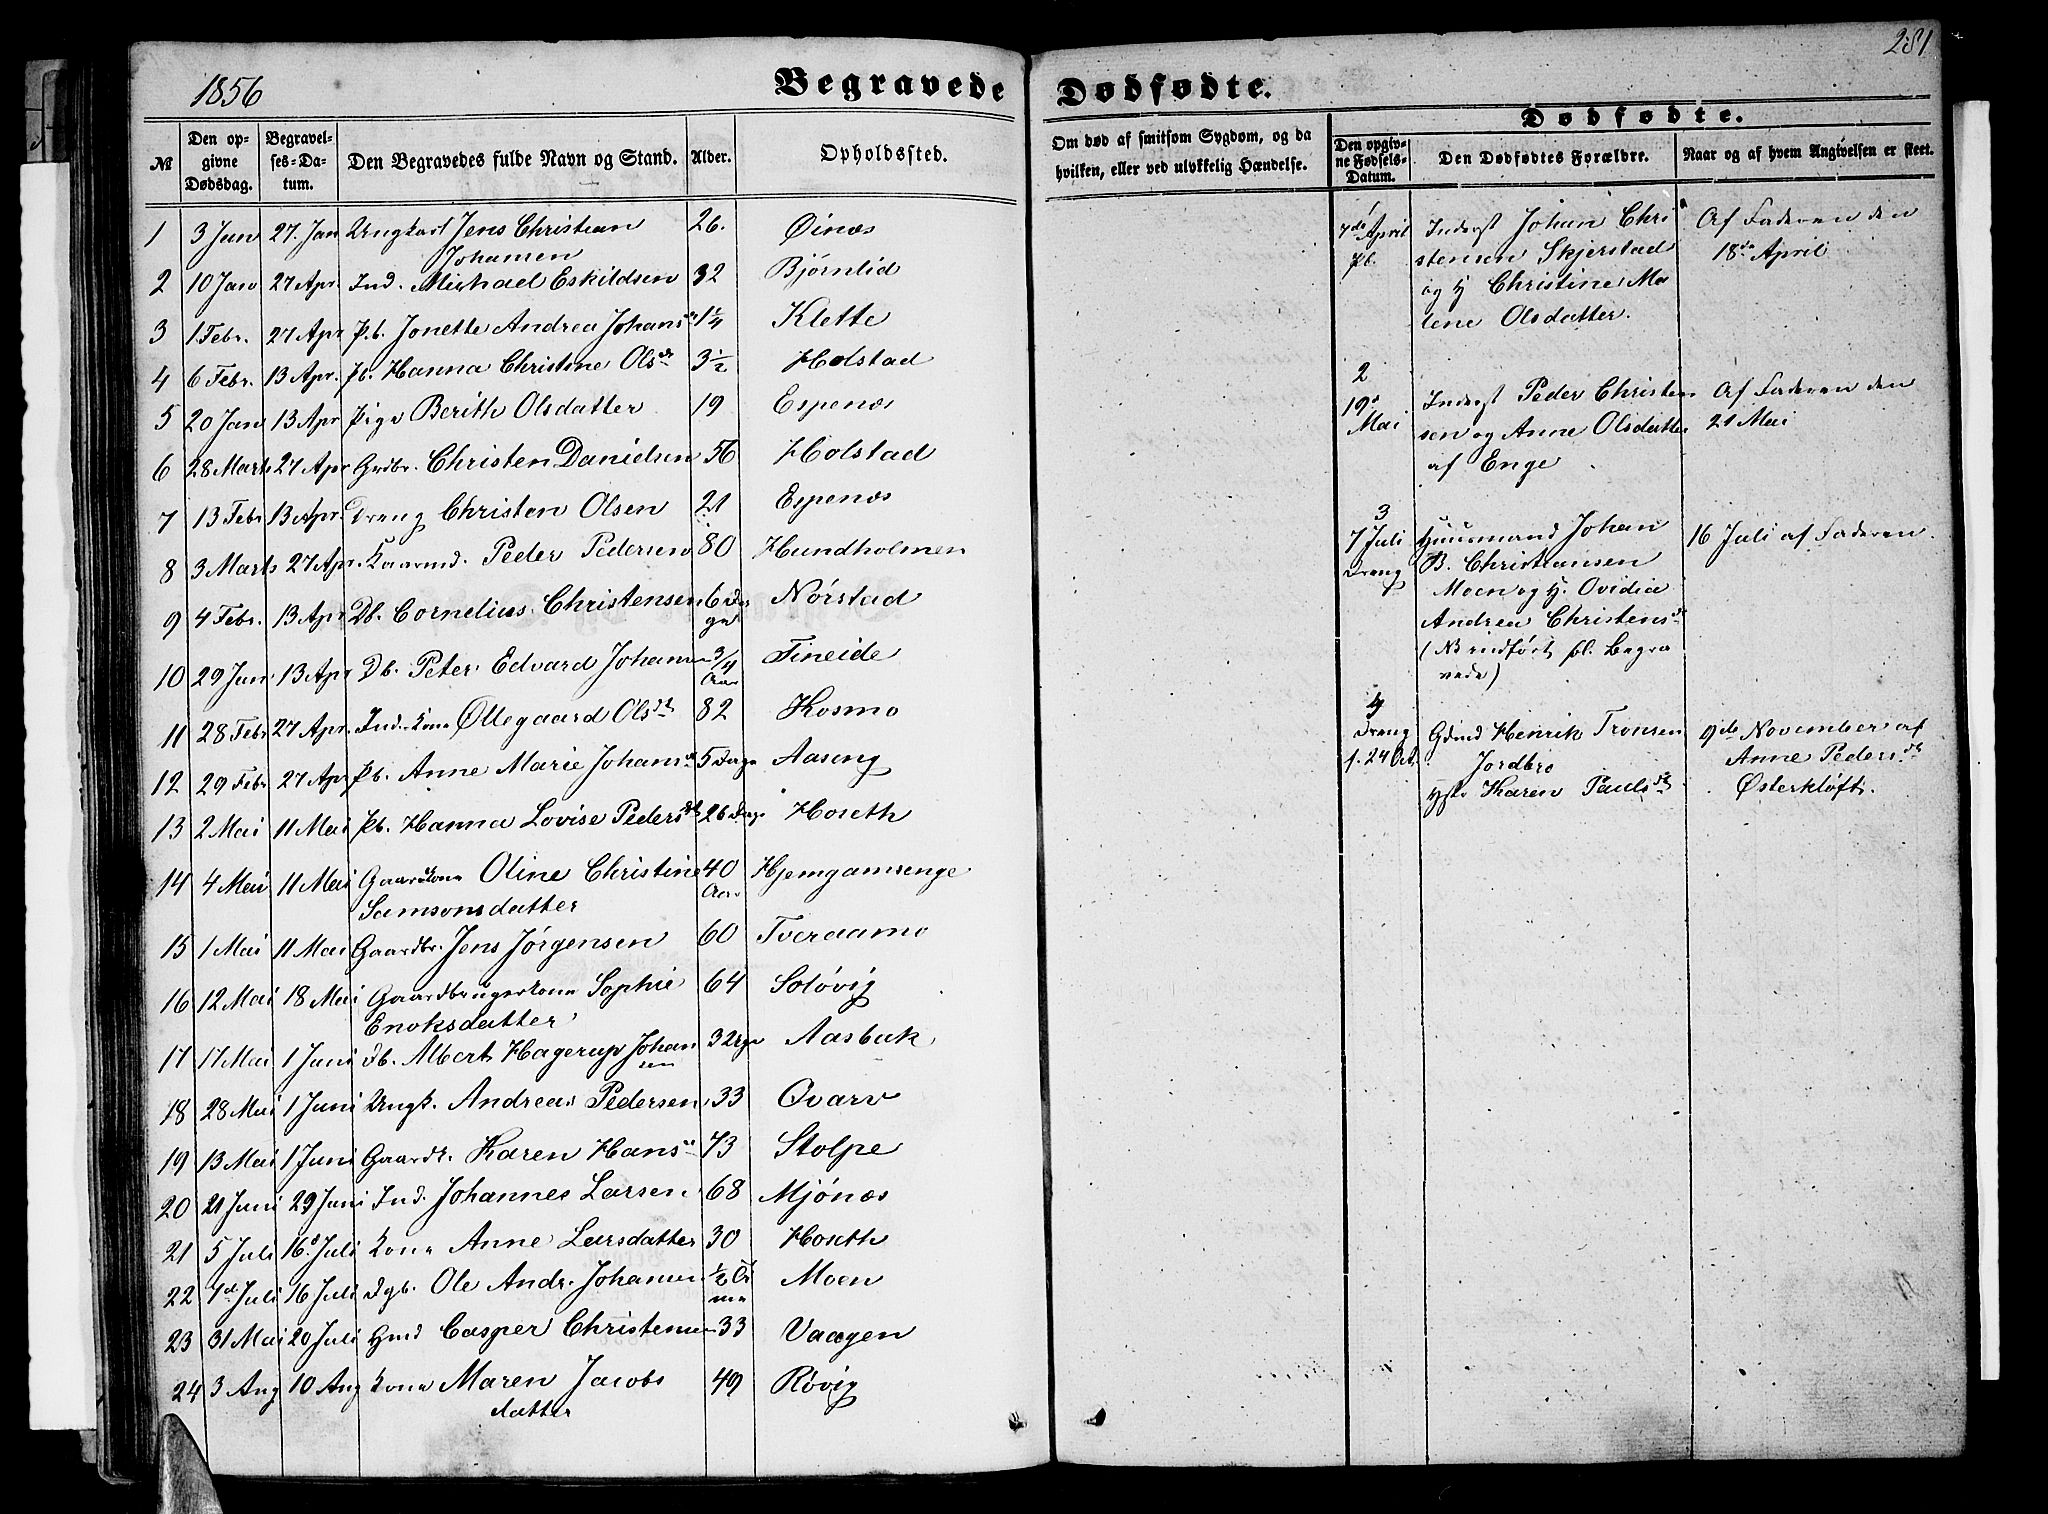 1856
Begravede
№
Den opgivne Dødsdag.
Begravelses-Datum.
Den Begravedes fulde Navn og Stand.
Alder.
Opholdssted.
1 3 Jan 27. Jan Ungkarl Jens Christian 26. Øinæs
Johansen
2 10 Jan 27 Apr. Ind. Michael Eskildsen 32 Bjørnlid
3 1 Febr. 27 Apr Pb. Jonette Andrea Johans 1¼ Klette
4 6 Febr. 13 Apr. Pb. Hanna Christine Olsdr 3½ Holstad
5 20 Jan 13 Apr Pige Berith Olsdatter 19 Espenæs
6 28 Marts 27 Apr Grdbr. Christen Danielsen 56 Holstad
7 13 Febr 13 Apr. Dreng Christen Olsen 21 Espenæs
8 3 Marts 27 Apr. Kaarmd. Peder Pedersen 80 Hundholmen
9 4 Febr. 13 Apr Db. Cornelius Christensen 6 Da Nørstad
ge
10 29 Jan 13 Apr Db. Peter Edvard Johansen 3/4 Fineide
Aar
11 28 Febr 27 Apr. Ind. Kone Øllegaard Olsdr 82 Kosmo
12 29 Febr 27 Apr Pb. Anne Marie Johansdr 5 Dage Aaseng
13 2 Mai 11 Mai Pb. Hanna Lovise Pedersdr 26 Dage Hoseth
14 4 Mai 11 Mai Gaardkone Oline Christine 40 Hjemgamsenge
Samsonsdatter Aar
15 1 Mai 11 Mai Gaardbr. Jens Jørgensen 60 Tveraamo
16 12 Mai 18 Mai Gaardbrugerkone Sophie 64 Soløvig
Enoksdatter
17 17 Mai 1 Juni Db. Albert Hagerup Johan Aasbak
sen
18 28 Mai 1 Juni Ungk. Andreas Pedersen 33 Qvarv
19 13 Mai 1 Juni Karen Hans 73 Stolpe
20 21 Juni 29 Juni Ind. Johannes Larsen 68 Mjønæs
21 5 Juli 16 Juli Kone Anne Larsdatter 30 Hoseth
22 7d Juli 16 Juli Dgb. Ole Andr. Johansen ½ Ti Moen
me
23 31 Mai 20 Juli Hmd Casper Christensen 33 Vaagen
24 3 Aug 10 Aug Kone Maren Jacobs 49 Røvig
datter
281
Dødfødte.
Om død af smitsom Sygdom, og da
hvilken, eller ved ulykkelig Hændelse.
Dødfødte.
Den opgivne Fødsels-Datum.
Den Dødfødtes Forældre.
Naar og af hvem Angivelsen er skeet.
1
7de April Inderst Johan Chri Af Faderen den
Pb. stensen Skjerstad 18de April
og H Christine Ma
lene Olsdatter.
2
19d Inderst Peder Christen Af Faderen den
Mai sen og Anne Olsdatter 21 Mai
af Enge
3
7 Juli Huusmand Johan 16 Juli af Faderen.
Dreng B. Christiansen
Moen og H. Ovidia
Andrea Christensdr
(NB indført bl. Begra
vede)
4
Dreng Gdmd Henrik Tronsen 9de November af
f. 24 Oct. Jordbro Anne Pedersdr
Hstr Karen Paulsdr Østerkløft.